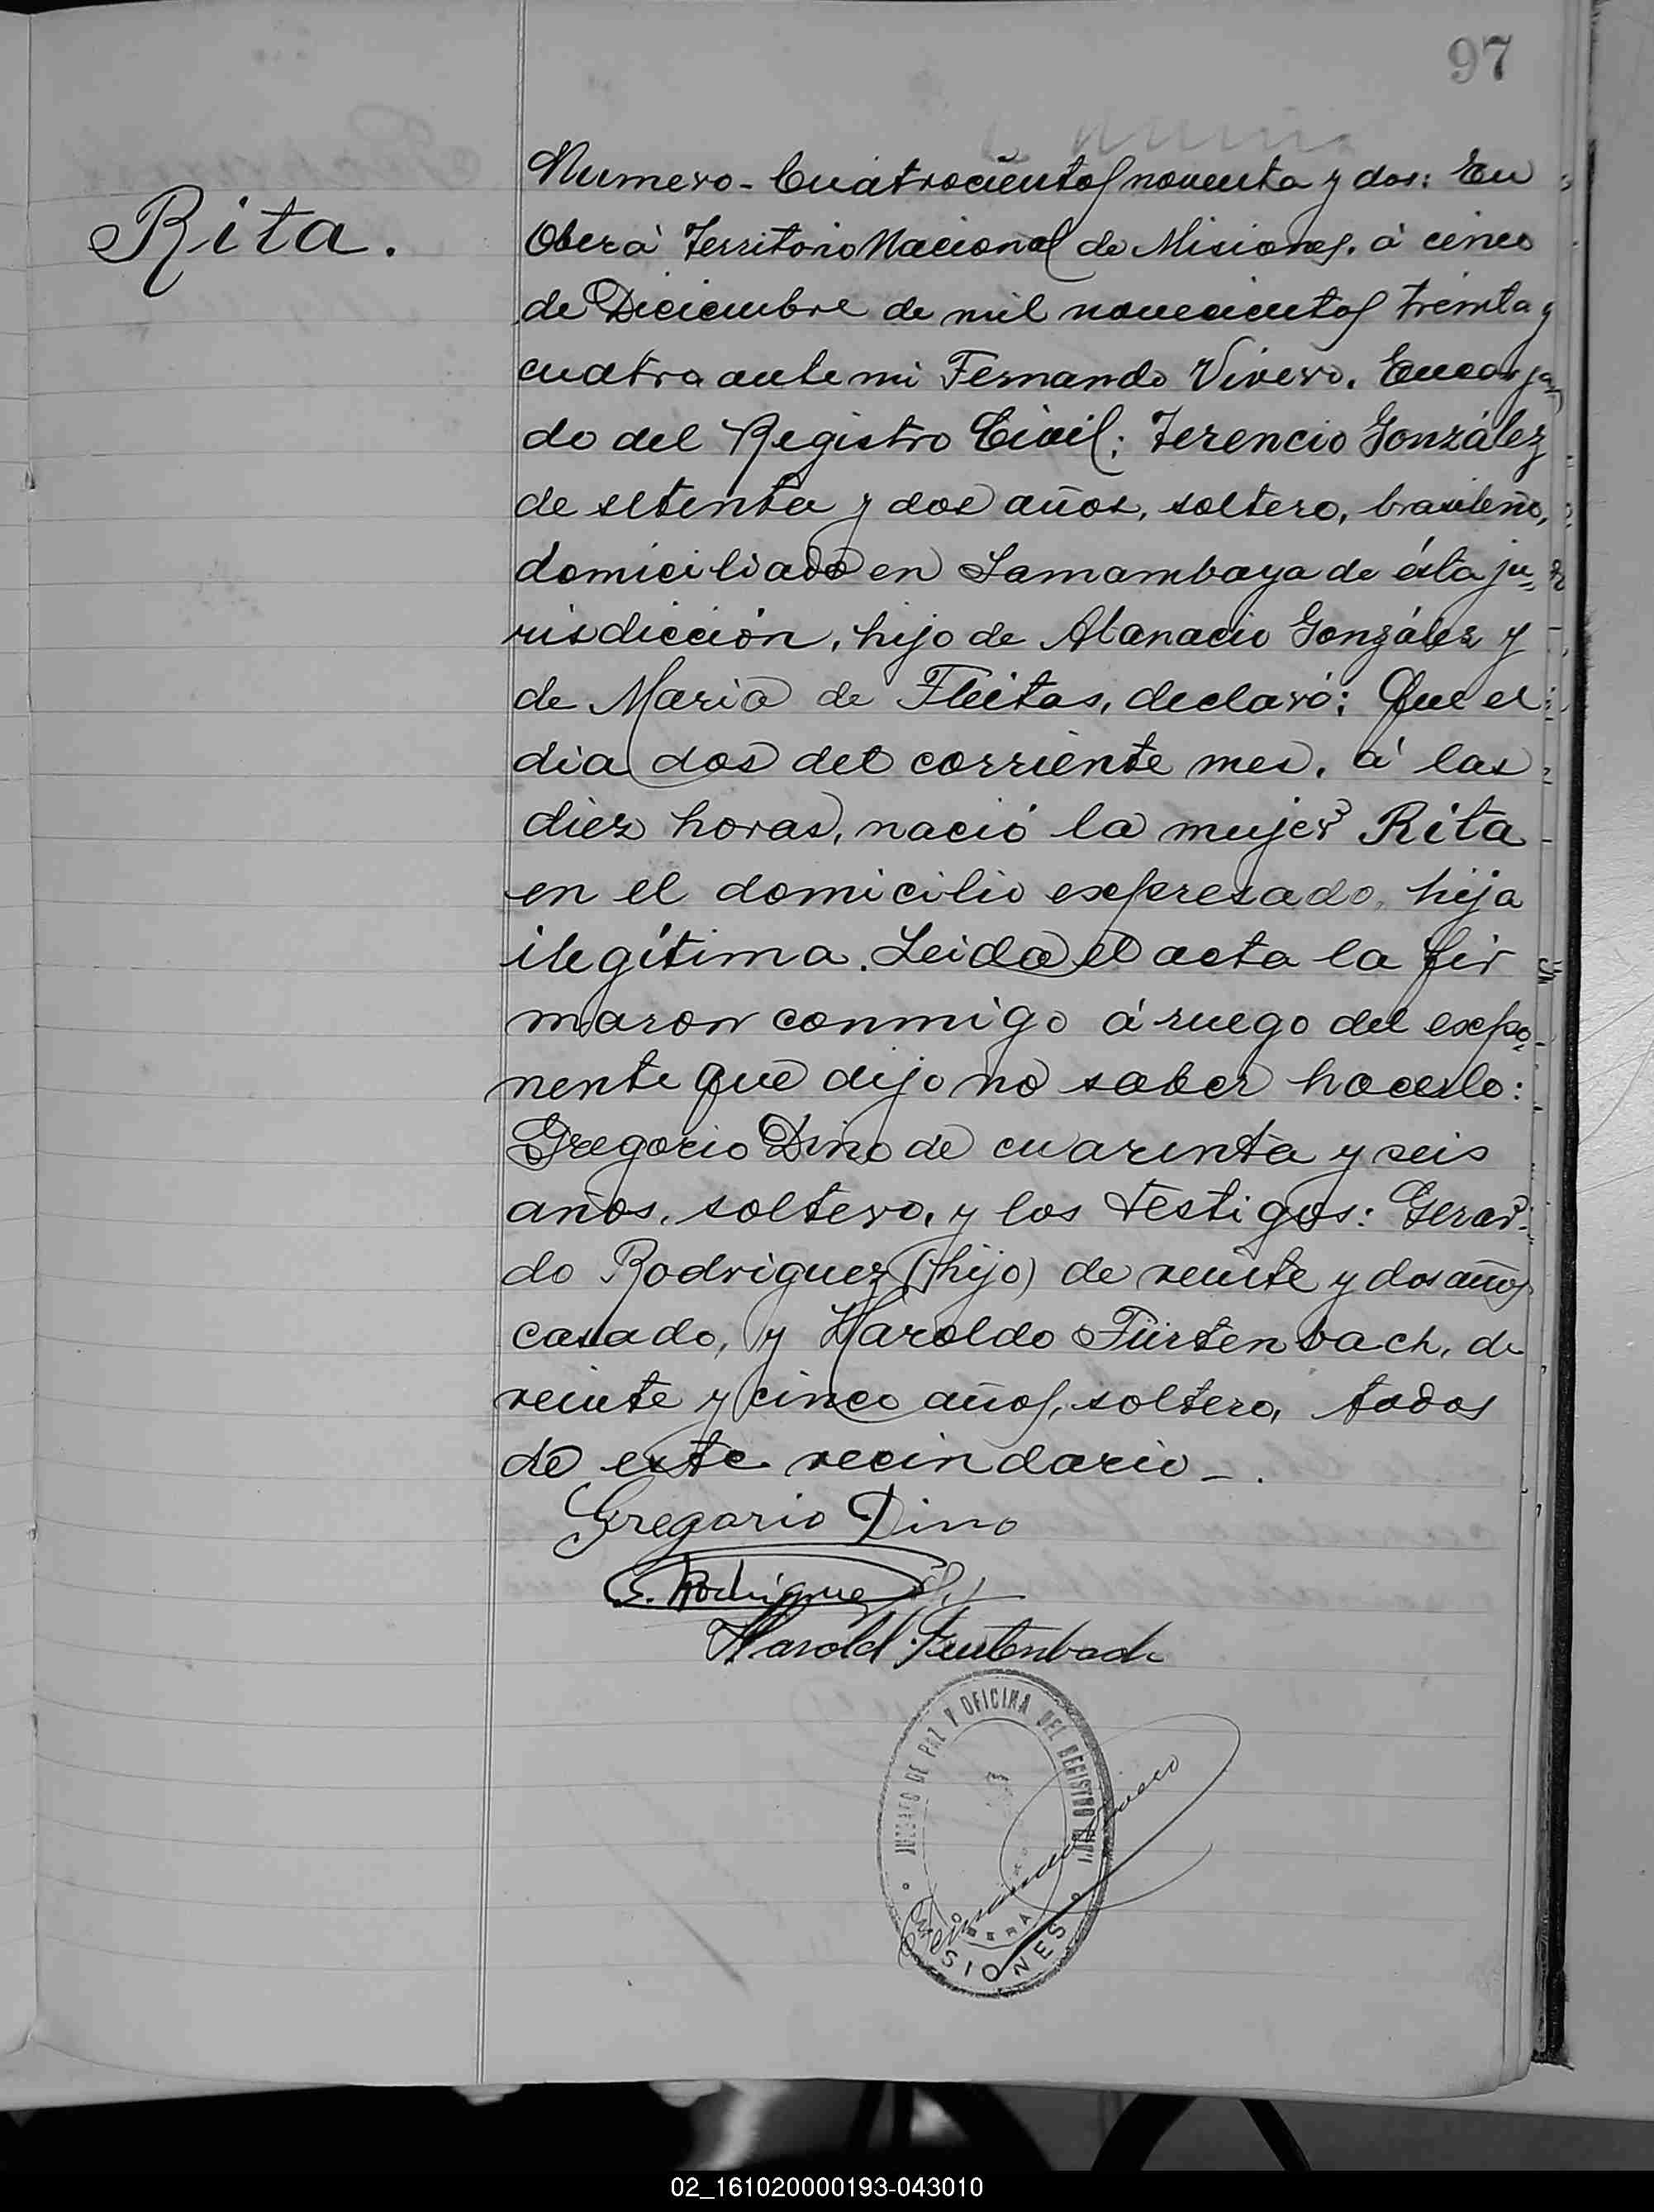 97
Rita.
Numero - Cuatrocientos noventa y dos: En
Oberá Territorio Nacional de Misiones. á cinco
de Diciembre de mil novecientos treinta y
cuatro ante mi Fernando Vivero. Encarga
do del Registro Civil; Terencio González
de setenta y dos años, soltero, brasileño,
domiciliado en Samambaya de ésta ju=
risdicción, hijo de Atanacio González y
de Maria de Fleitas, declaró: Que el
dia dos del corriente mes. á las
diez horas, nació la mujer Rita
en el domicilio expresado, hija
ilegítima. Leida el acta la fir
maron conmigo á ruego del expo=
nente que dijo no saber hacerlo:
Gregorio Dino de cuarenta y seis
años, soltero, y los testigos: Gerar=
do Rodriguez (hijo) de veinte y dos años
casado, y Haroldo Fürstenbach, de
veinte y cinco años, soltero, todos
de este vecindario - .
Gregorio Dino
G. Rodriguez
Harold Furtenbach
JUZGADO DE PAZ Y OFICINA DEL REGISTRO CIVIL
Fernando Vivero
OBERA
MISIONES
02_161020000193-043010